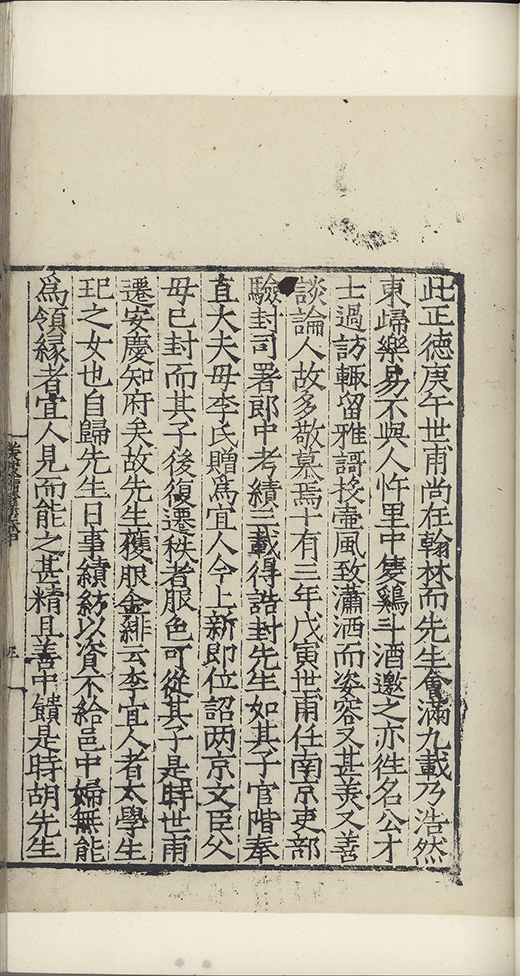 此正德庚午世甫尚在翰林而先生會滿九載乃浩然
東歸樂易不與人忤里中隻鷄斗酒邀之亦徃名公才
士過訪輙留雅謌投壷風致瀟洒而姿容又甚美又善
談論人故多敬慕焉十有三年戊寅世甫任南京吏部
驗封司署郎中考績三載得誥封先生如其子官階奉
直大夫母李氏贈爲宜人今上新即位詔两京文臣父
母已封而其子後復遷秩者服色可從其子是時世甫
遷安慶知府矣故先生獲服金緋云李宜人者太學生
玘之女也自歸先生日事績紡以資不給邑中婦無能
爲領縁者宜人見而能之甚精且善中饋是時胡先生